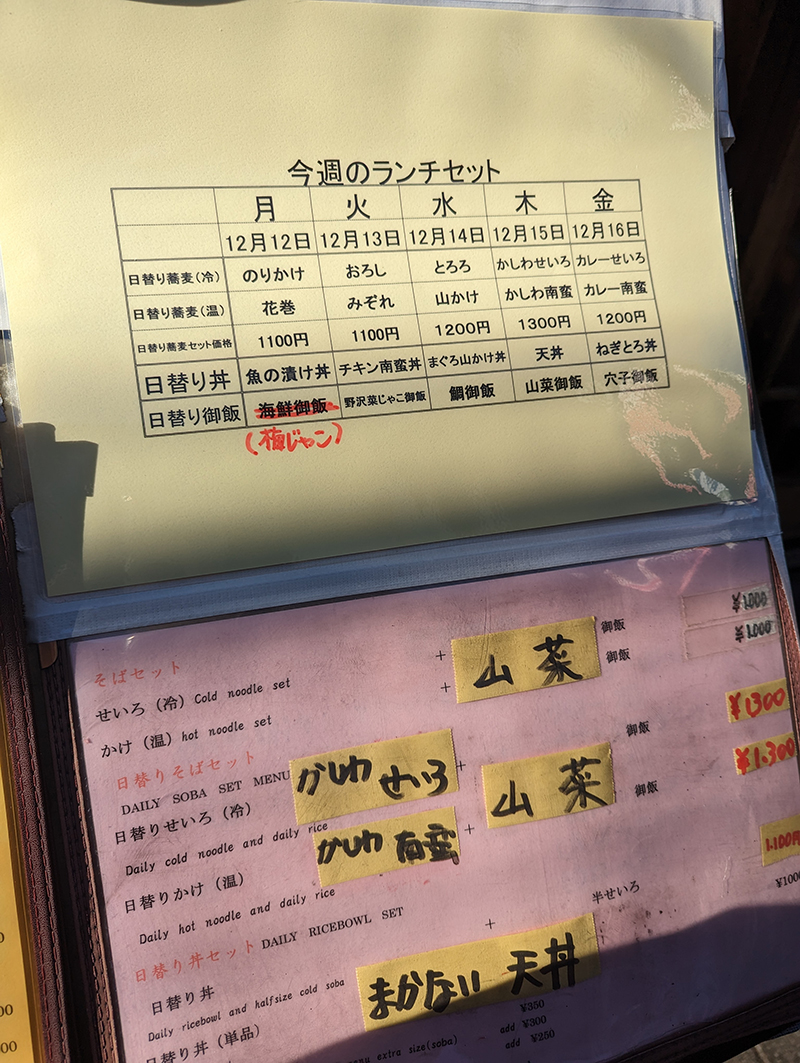 今週のランチセット
月 火 水 木 金
12月12日 12月13日 12月14日 12月15日 12月16日
日替り蕎麦(冷) のりかけ おろし とろろ かしわせいろ カレーせいろ
日替り蕎麦(温) 花巻 みぞれ 山かけ かしわ南蛮 カレー南蛮
日替り蕎麦セット価格 1100円 1100円 1200円 1300円 1200円
日替り丼 魚の漬け丼 チキン南蛮丼 まぐろ山かけ丼 天丼 ねぎとろ丼
日替り御飯 海鮮御飯 野沢菜じゃこ御飯 鯛御飯 山菜御飯 穴子御飯
(梅じゃこ)
そばセット
せいろ (冷) Cold noodle set + 山菜 御飯 ¥1000
かけ (温) hot noodle set + 御飯 ¥1000
日替りそばセット
DAILY SOBA SET MENU
日替りせいろ (冷) かしわせいろ + 山菜 御飯 ¥1300
Daily cold noodle and daily rice
日替りかけ (温) かしわ南蛮 + 御飯 ¥1,300
Daily hot noodle and daily rice
日替り丼セット DAILY RICEBOWL SET
日替り丼 まかない天丼 + 半せいろ 1100円
Daily ricebowl and halfsize cold soba
日替り丼 (単品) ¥1000
¥350
extra size(soba) add ¥300
add ¥250